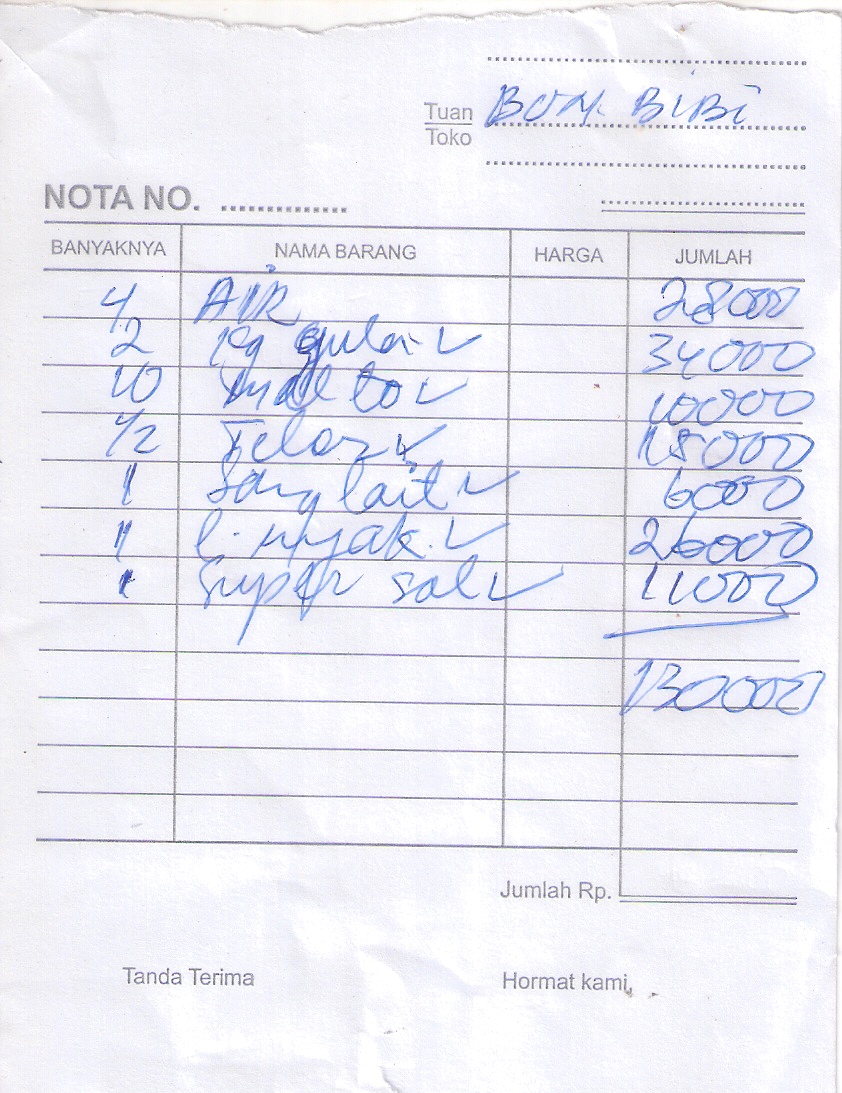 Tuan BON BiBi
Toko
NOTA NO. ..............
BANYAKNYA NAMA BARANG HARGA JUMLAH
4 AIR 28000
2 kg gula 34000
10 10000
1/2 Telor 15000
1 6000
1 26000
1 super 11000
130000
Jumlah Rp.
Tanda Terima Hormat kami,